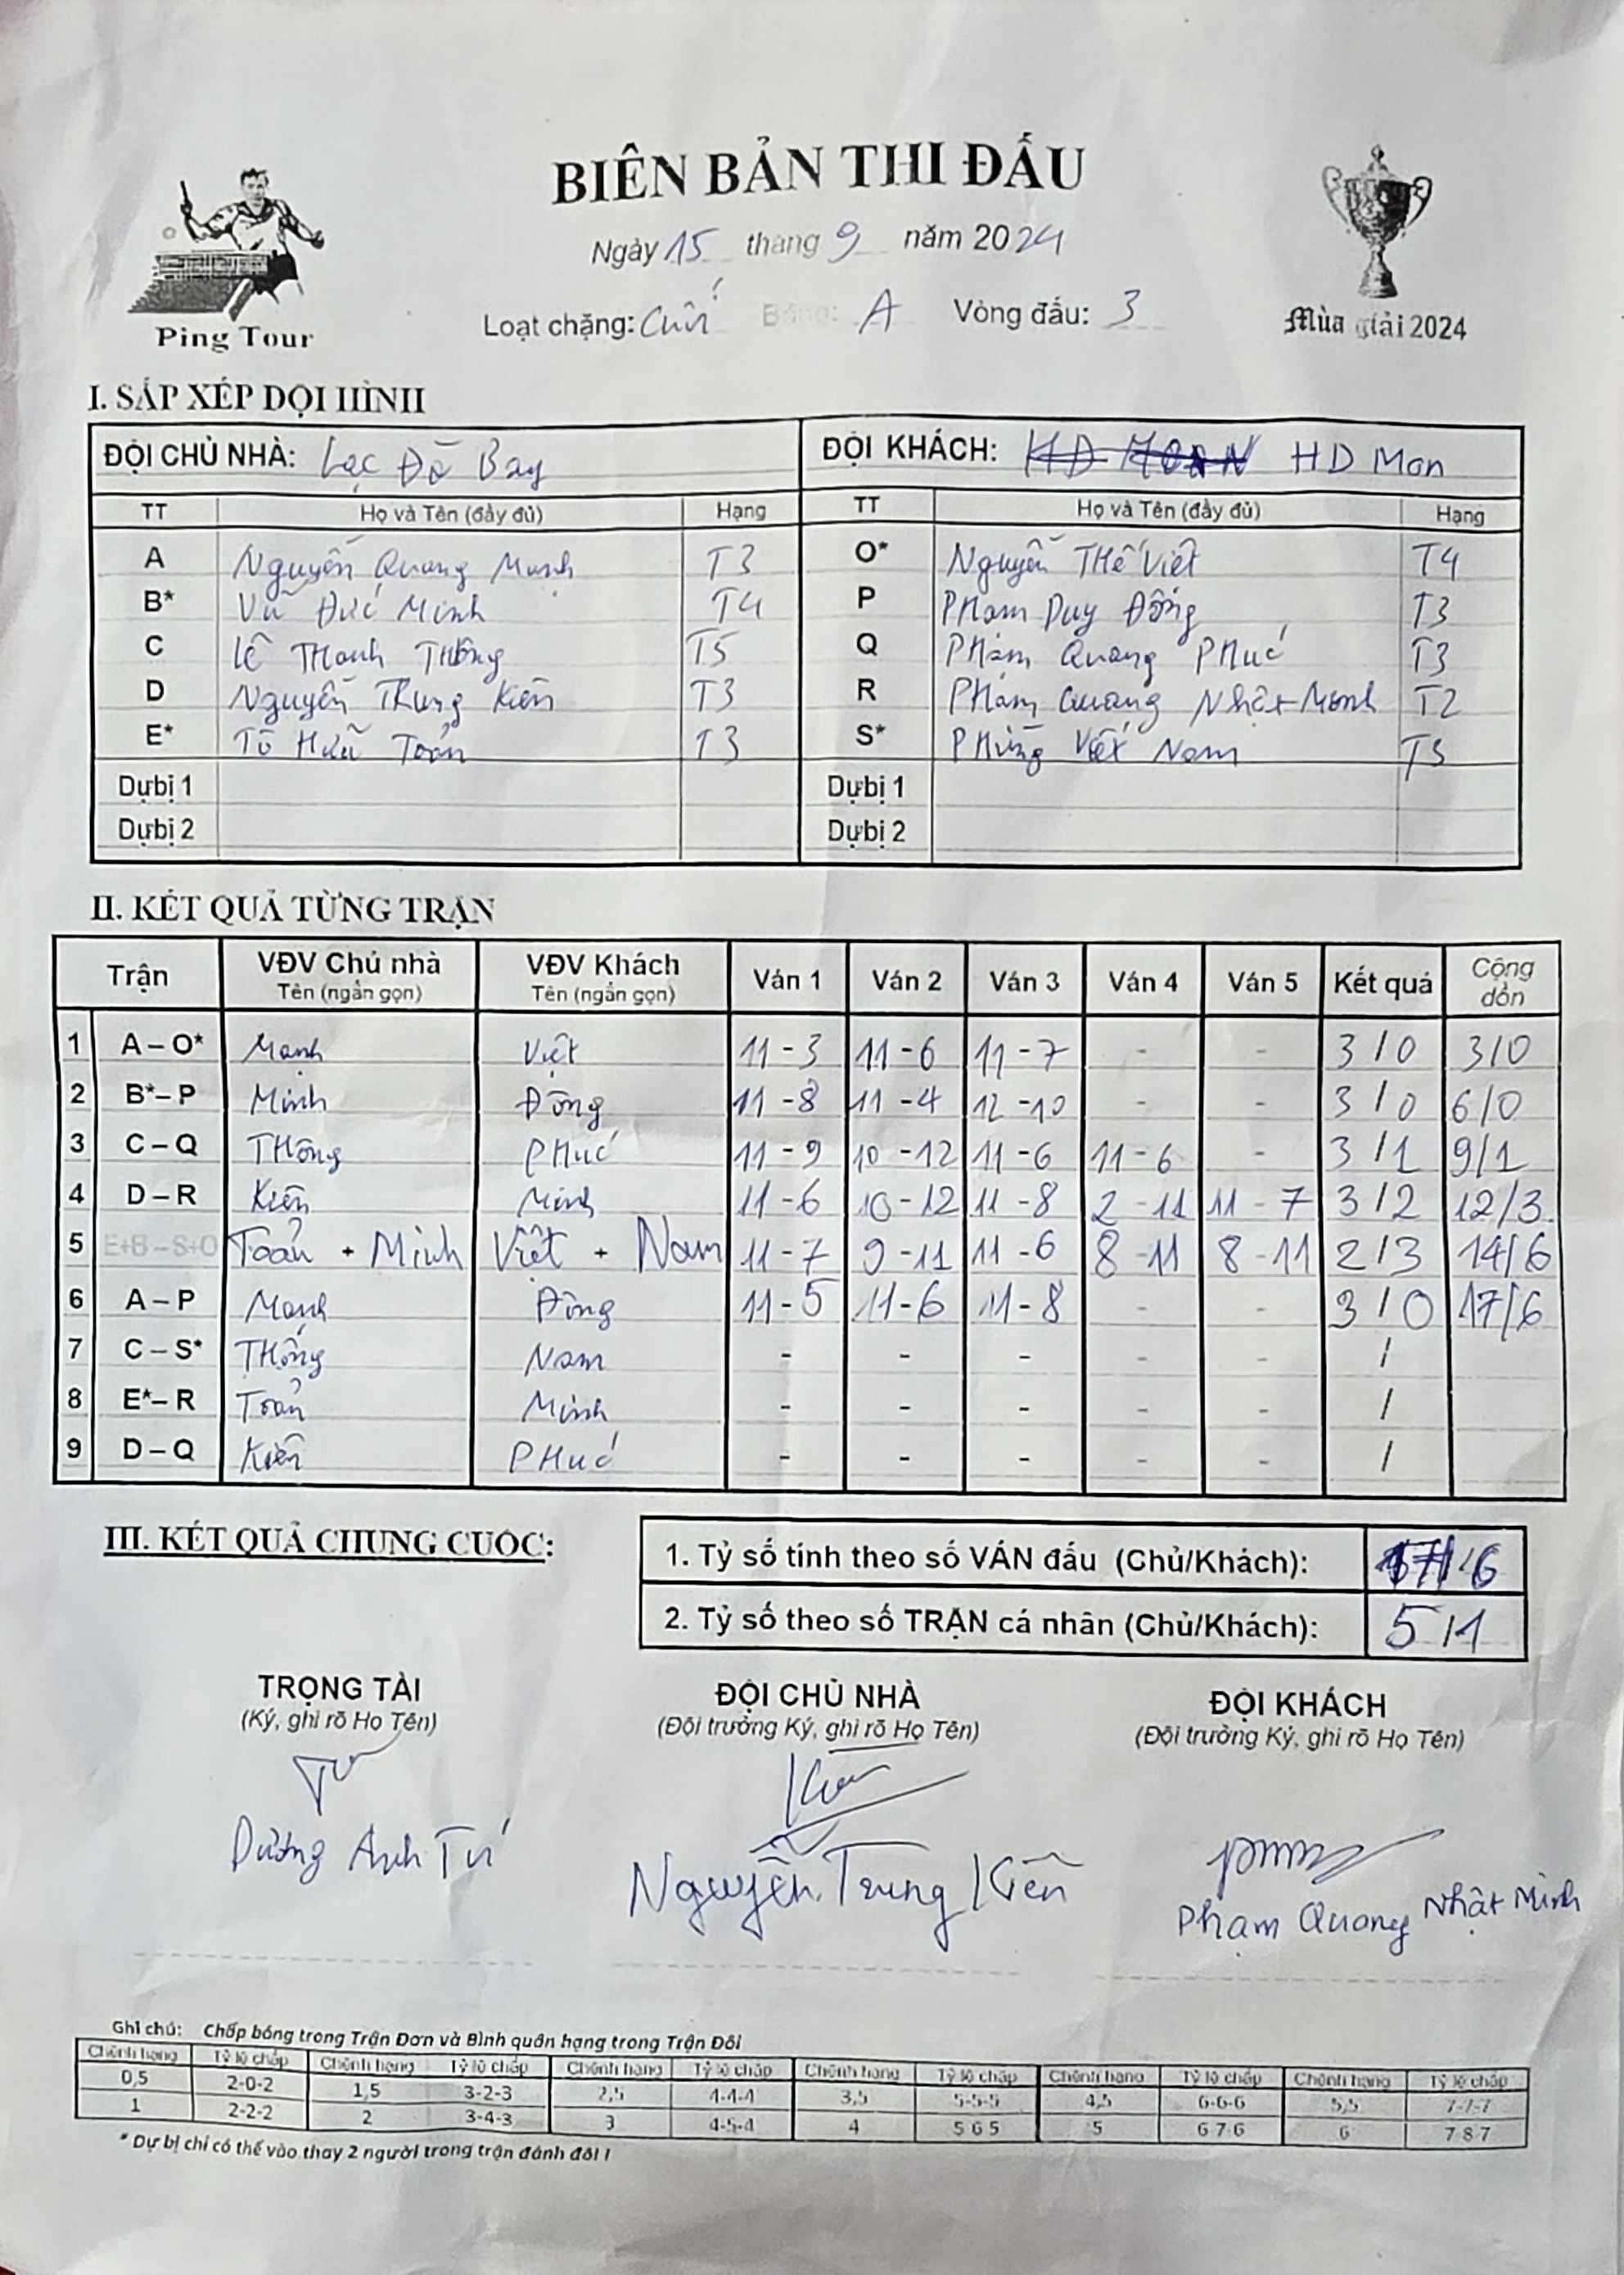 BIÊN BẢN THI ĐẤU
Ngày 15 tháng 9 năm 2024
Loạt chặng: Cuối Bảng: A Vòng đấu: 3
Ping Tour
Mùa giải 2024
I. SẮP XẾP ĐỘI HÌNH
ĐỘI CHỦ NHÀ: Lạc Đà Bay ĐỘI KHÁCH: HD Mon
TT Họ và Tên (đầy đủ) Hạng TT Họ và Tên (đầy đủ) Hạng
A Nguyễn Quang Mạnh T3 O* Nguyễn THế Việt T4
B* Vũ Đức Minh T4 P PHạm Duy Đông T3
C Lê THanh THông T5 Q PHạm Quang PHúc T3
D Nguyễn Trung Kiên T3 R PHạm Quang Nhật Minh T2
E* Tô Hữu Toản T3 S* PHùng Việt Nam
Dự bị 1 Dự bị 1
Dự bị 2 Dự bị 2
II. KẾT QUẢ TỪNG TRẬN
Trận VĐV Chủ nhà Tên (ngắn gọn) VĐV Khách Tên (ngắn gọn) Ván 1 Ván 2 Ván 3 Ván 4 Ván 5 Kết quả Cộng dồn
1 A – O* Mạnh Việt 11 - 3 11 - 6 11 - 7 - - 3 / 0 3/0
2 B* – P Minh Đông 11 - 8 11 - 4 12 - 10 - - 3 / 0 6/0
3 C – Q THông PHúc 11 - 9 10 - 12 11 - 6 11 - 6 - 3 / 1 9/1
4 D – R Kiên Minh 11 - 6 10 - 12 11 - 8 2 - 11 11 - 7 3 / 2 12/3
5 E+B – S+O Toản + Minh Việt + Nam 11 - 7 9 - 11 11 - 6 8 - 11 8 - 11 2 / 3 14/6
6 A – P Mạnh Đông 11 - 5 11 - 6 11 - 8 - - 3 / 0 17/6
7 C – S* THông Nam - - - - - /
8 E* – R Toản Minh - - - - - /
9 D – Q Kiên PHúc - - - - - /
III. KẾT QUẢ CHUNG CUỘC:
1. Tỷ số tính theo số VÁN đấu (Chủ/Khách): 17/6
2. Tỷ số theo số TRẬN cá nhân (Chủ/Khách): 5/1
TRỌNG TÀI ĐỘI CHỦ NHÀ ĐỘI KHÁCH
(Ký, ghi rõ Họ Tên) (Đội trưởng Ký, ghi rõ Họ Tên) (Đội trưởng Ký, ghi rõ Họ Tên)
Dương Anh Tú Nguyễn Trung Kiên Phạm Quang Nhật Minh
Ghi chú: Chấp bóng trong Trận Đơn và Bình quân hạng trong Trận Đôi
Chênh hạng Tỷ lệ chấp Chênh hạng Tỷ lệ chấp Chênh hạng Tỷ lệ chấp Chênh hạng Tỷ lệ chấp Chênh hạng Tỷ lệ chấp Chênh hạng Tỷ lệ chấp
0,5 2-0-2 1,5 3-2-3 2,5 4-4-4 3,5 5-5-5 4,5 6-6-6 5,5 7-7-7
1 2-2-2 2 3-4-3 3 4-5-4 4 5 6 5 5 6 7 6 6 7 8 7
* Dự bị chỉ có thể vào thay 2 người trong trận đánh đôi !